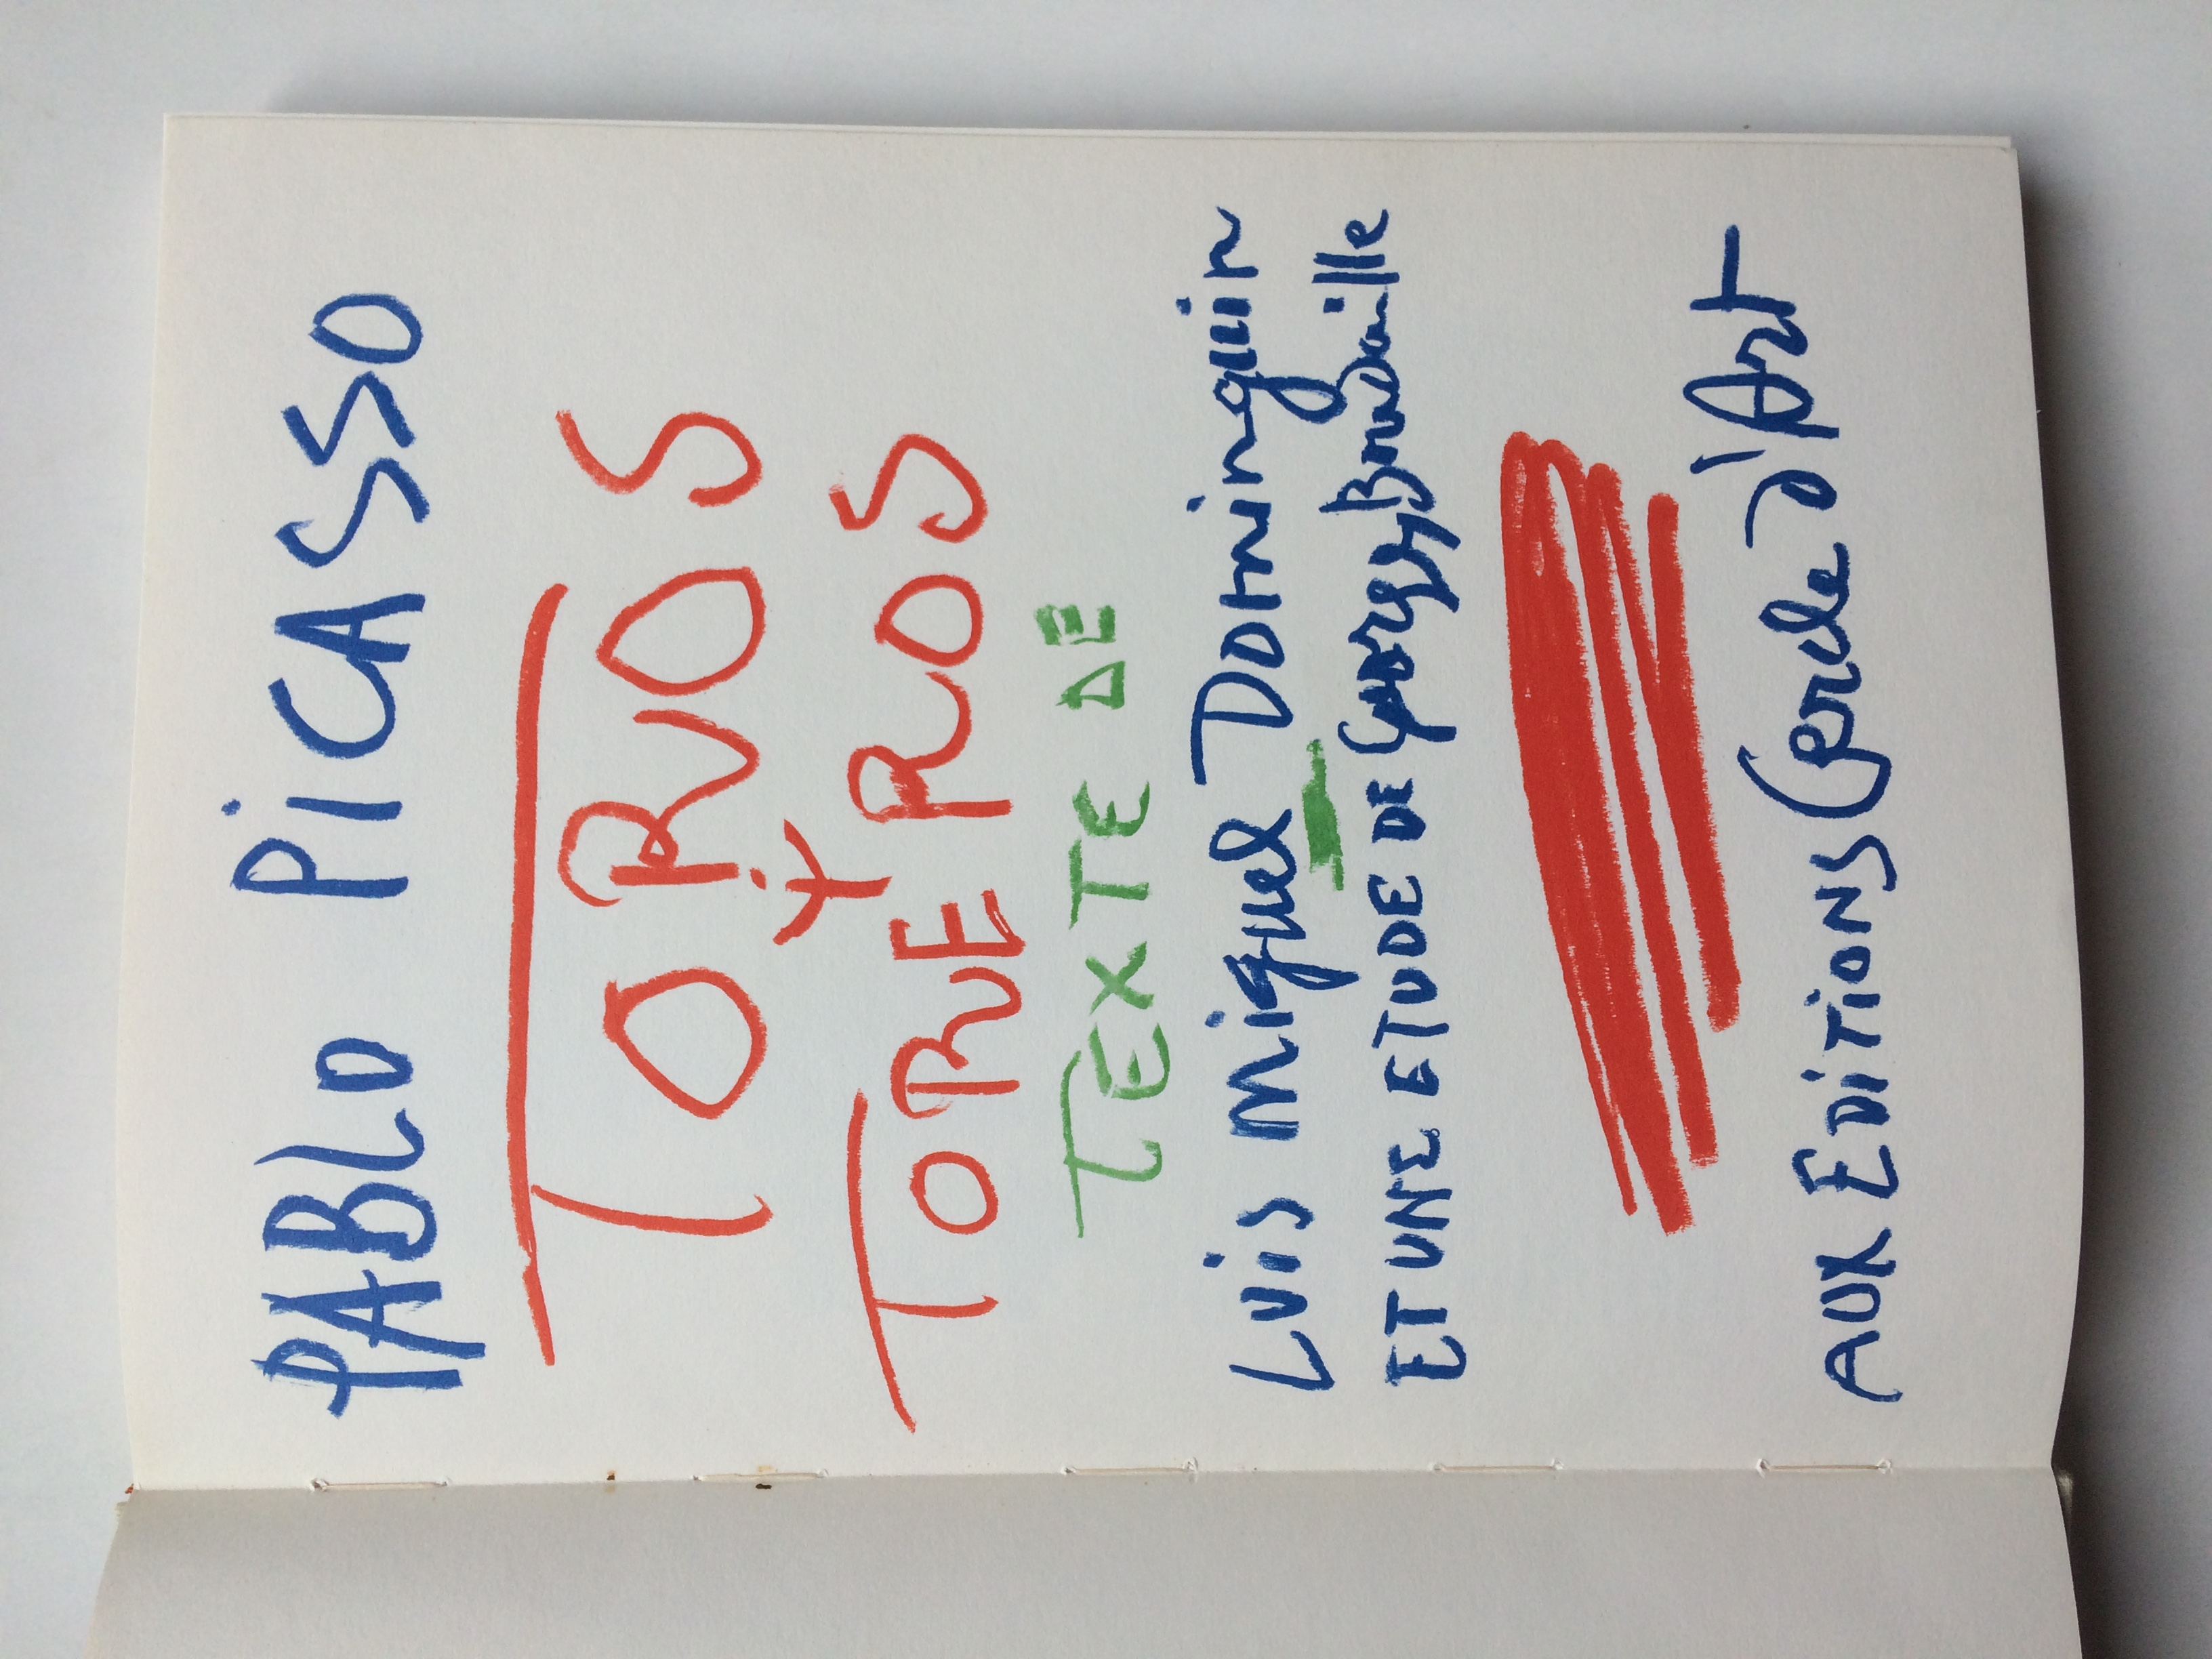 PABLO PiCASSO
TOROS
Y
TOREROS
TEXTE DE
Luis Miguel Dominguin
ET UNE ETUDE DE Georges Boudaille
AUX EDiTiONS Cercle d'Art